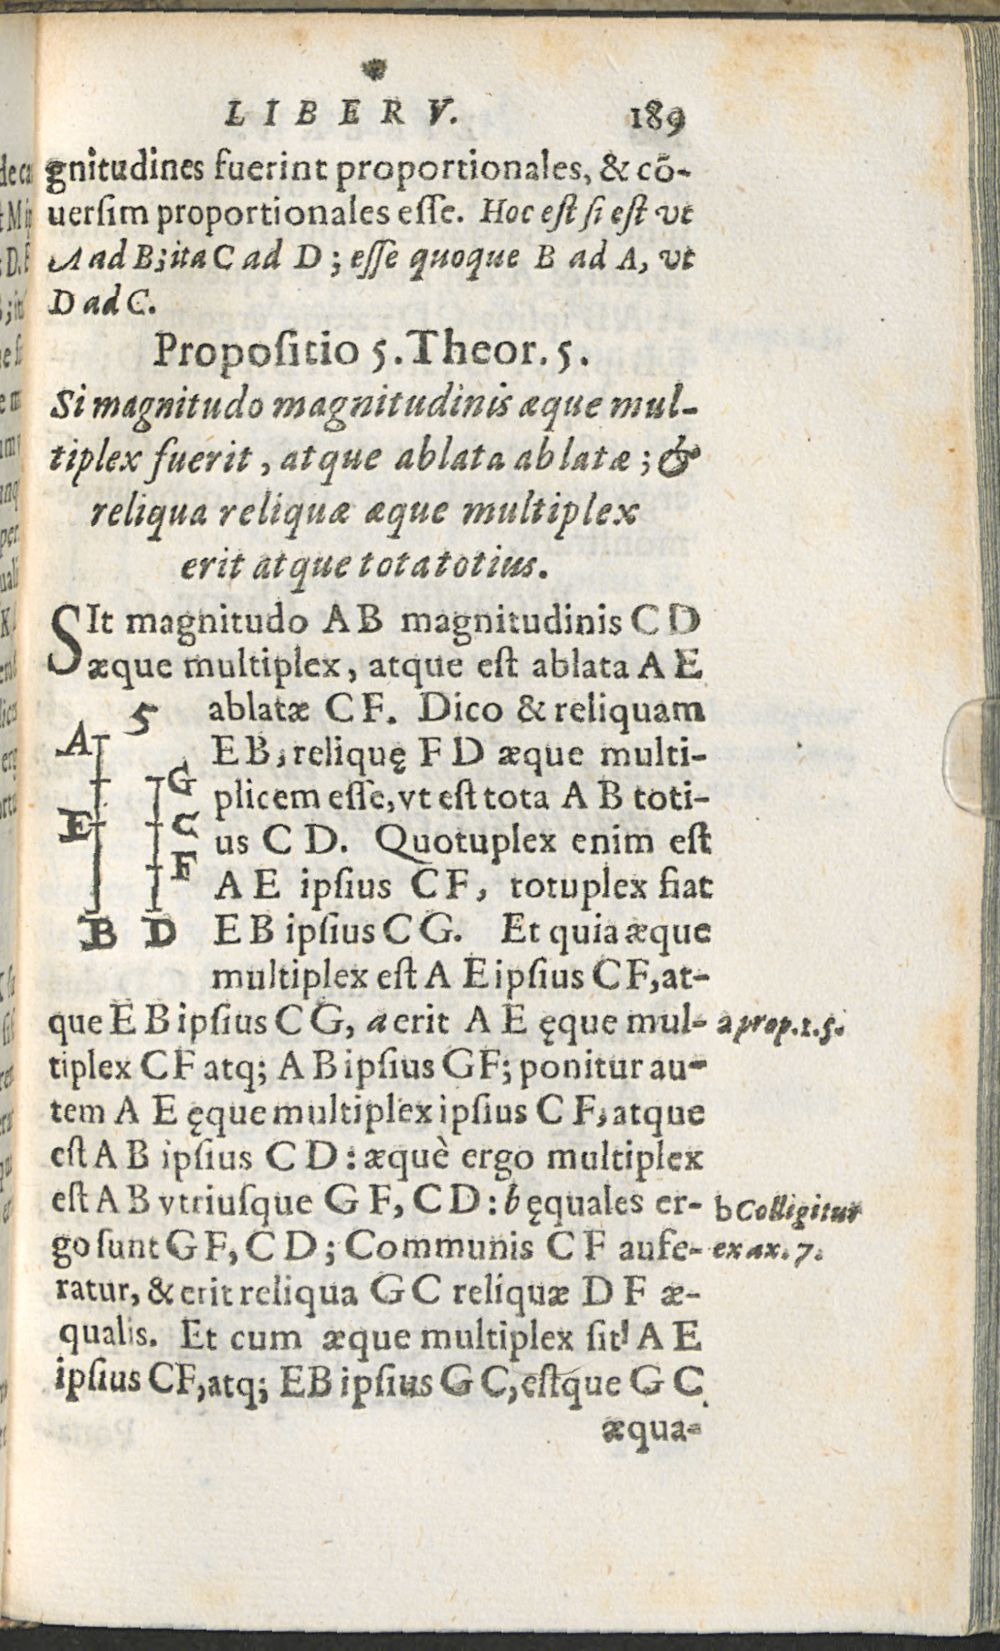 LIBER V. 189
gnitudines fuerint proportionales, & cõ-
uersim proportionales esse. Hoc est si est vt
A ad B; ita C ad D; esse quoque B ad A, vt
D ad C.
Propositio 5. Theor. 5.
Si magnitudo magnitudinis æque mul-
tiplex fuerit, atque ablata ablatæ; &
reliqua reliquæ æque multiplex
erit atque tota totius.
SIt magnitudo A B magnitudinis C D
æque multiplex, atque est ablata A E
ablatæ C F. Dico & reliquam
E B, reliquę F D æque multi-
plicem esse, vt est tota A B toti-
us C D. Quotuplex enim est
A E ipsius C F, totuplex fiat
E B ipsius C G. Et quia æque
multiplex est A E ipsius C F, at-
5
A
G
E
C
F
B D
que E B ipsius C G, a erit A E ęque mul-
a prop. 1. 5.
tiplex C F atq; A B ipsius GF; ponitur au-
tem A E ęque multiplex ipsius C F, atque
est A B ipsius C D: æquè ergo multiplex
est A B vtriusque G F, C D: b ęquales er-
b Colligitur
go sunt G F, C D; Communis C F aufe-
ex ax. 7.
ratur, & erit reliqua G C reliquæ D F æ-
qualis. Et cum æque multiplex sit A E
ipsius CF, atq; EB ipsius G C, estque G C
æqua-